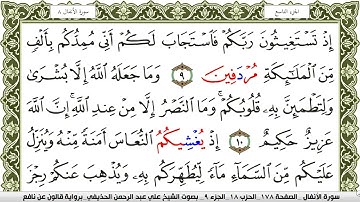 الجزء التاسع سورة الأنفال ٨
إِذْ تَسْتَغِيثُونَ رَبَّكُمْ فَاسْتَجَابَ لَكُمْ أَنِّي مُمِدُّكُم بِأَلْفٍ
مِّنَ ٱلْمَلَٰٓئِكَةِ مُرْدَفِينَ ٩ وَمَا جَعَلَهُ ٱللَّهُ إِلَّا بُشْرَىٰ
وَلِتَطْمَئِنَّ بِهِۦ قُلُوبُكُمْ وَمَا ٱلنَّصْرُ إِلَّا مِنْ عِندِ ٱللَّهِ إِنَّ ٱللَّهَ
عَزِيزٌ حَكِيمٌ ١٠ إِذْ يُغْشِيكُمُ ٱلنُّعَاسَ أَمَنَةً مِّنْهُ وَيُنَزِّلُ
عَلَيْكُم مِّنَ ٱلسَّمَآءِ مَآءً لِّيُطَهِّرَكُم بِهِۦ وَيُذْهِبَ عَنكُمْ رِجْزَ
سورة الأنفال _ الصفحة ١٧٨_ الحزب ١٨_ الجزء ٩ _ بصوت الشيخ علي عبد الرحمن الحذيفي _ برواية قالون عن نافع